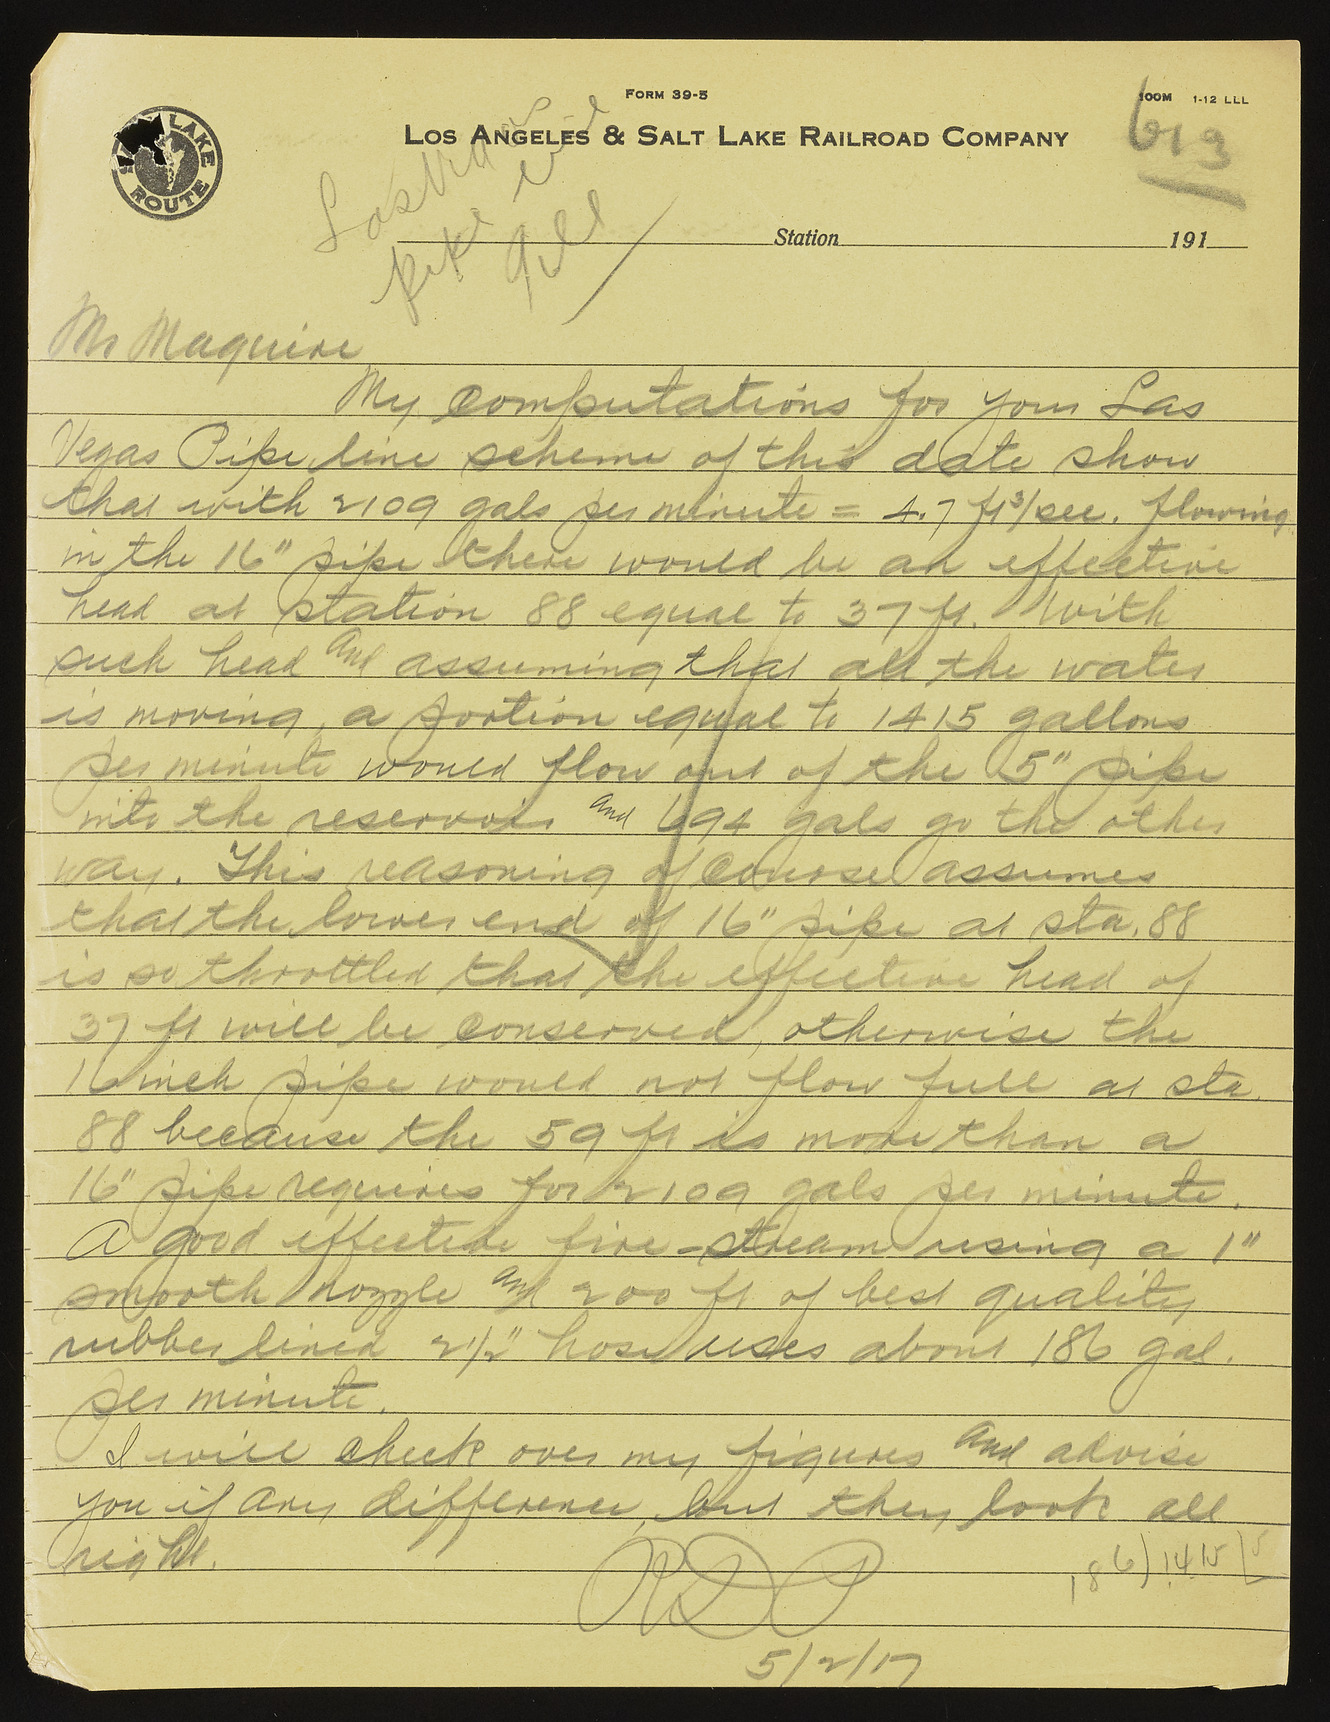 FORM 39-5
100M 1-12 LLL
LOS ANGELES & SALT LAKE RAILROAD COMPANY
LAKE
ROUTE
613
Las Vegas
pipe line
Gill
Station 191
Mr Maguire
My computations for your Las
Vegas Pipe line scheme of this date show
that with 2109 gals per minute = 4.7 ft³/sec. flowing
in the 16" pipe there would be an effective
head at station 88 equal to 37 ft. With
such head and assuming that all the water
is moving, a portion equal to 1415 gallons
per minute would flow out of the 15" pipe
into the reservoir and 694 gals go the other
way. This reasoning of course assumes
that the lower end of 16" pipe at sta. 88
is so throttled that the effective head of
37 ft will be conserved, otherwise the
16 inch pipe would not flow full at sta.
88 because the 59 ft is more than a
16" pipe requires for 2109 gals per minute.
A good effective fire-stream using a 1"
smooth nozzle and 200 ft of best quality
rubber lined 2½" hose uses about 186 gal.
per minute.
I will check over my figures and advise
you if any difference, but they look all
right.
186)1415(
5/2/17